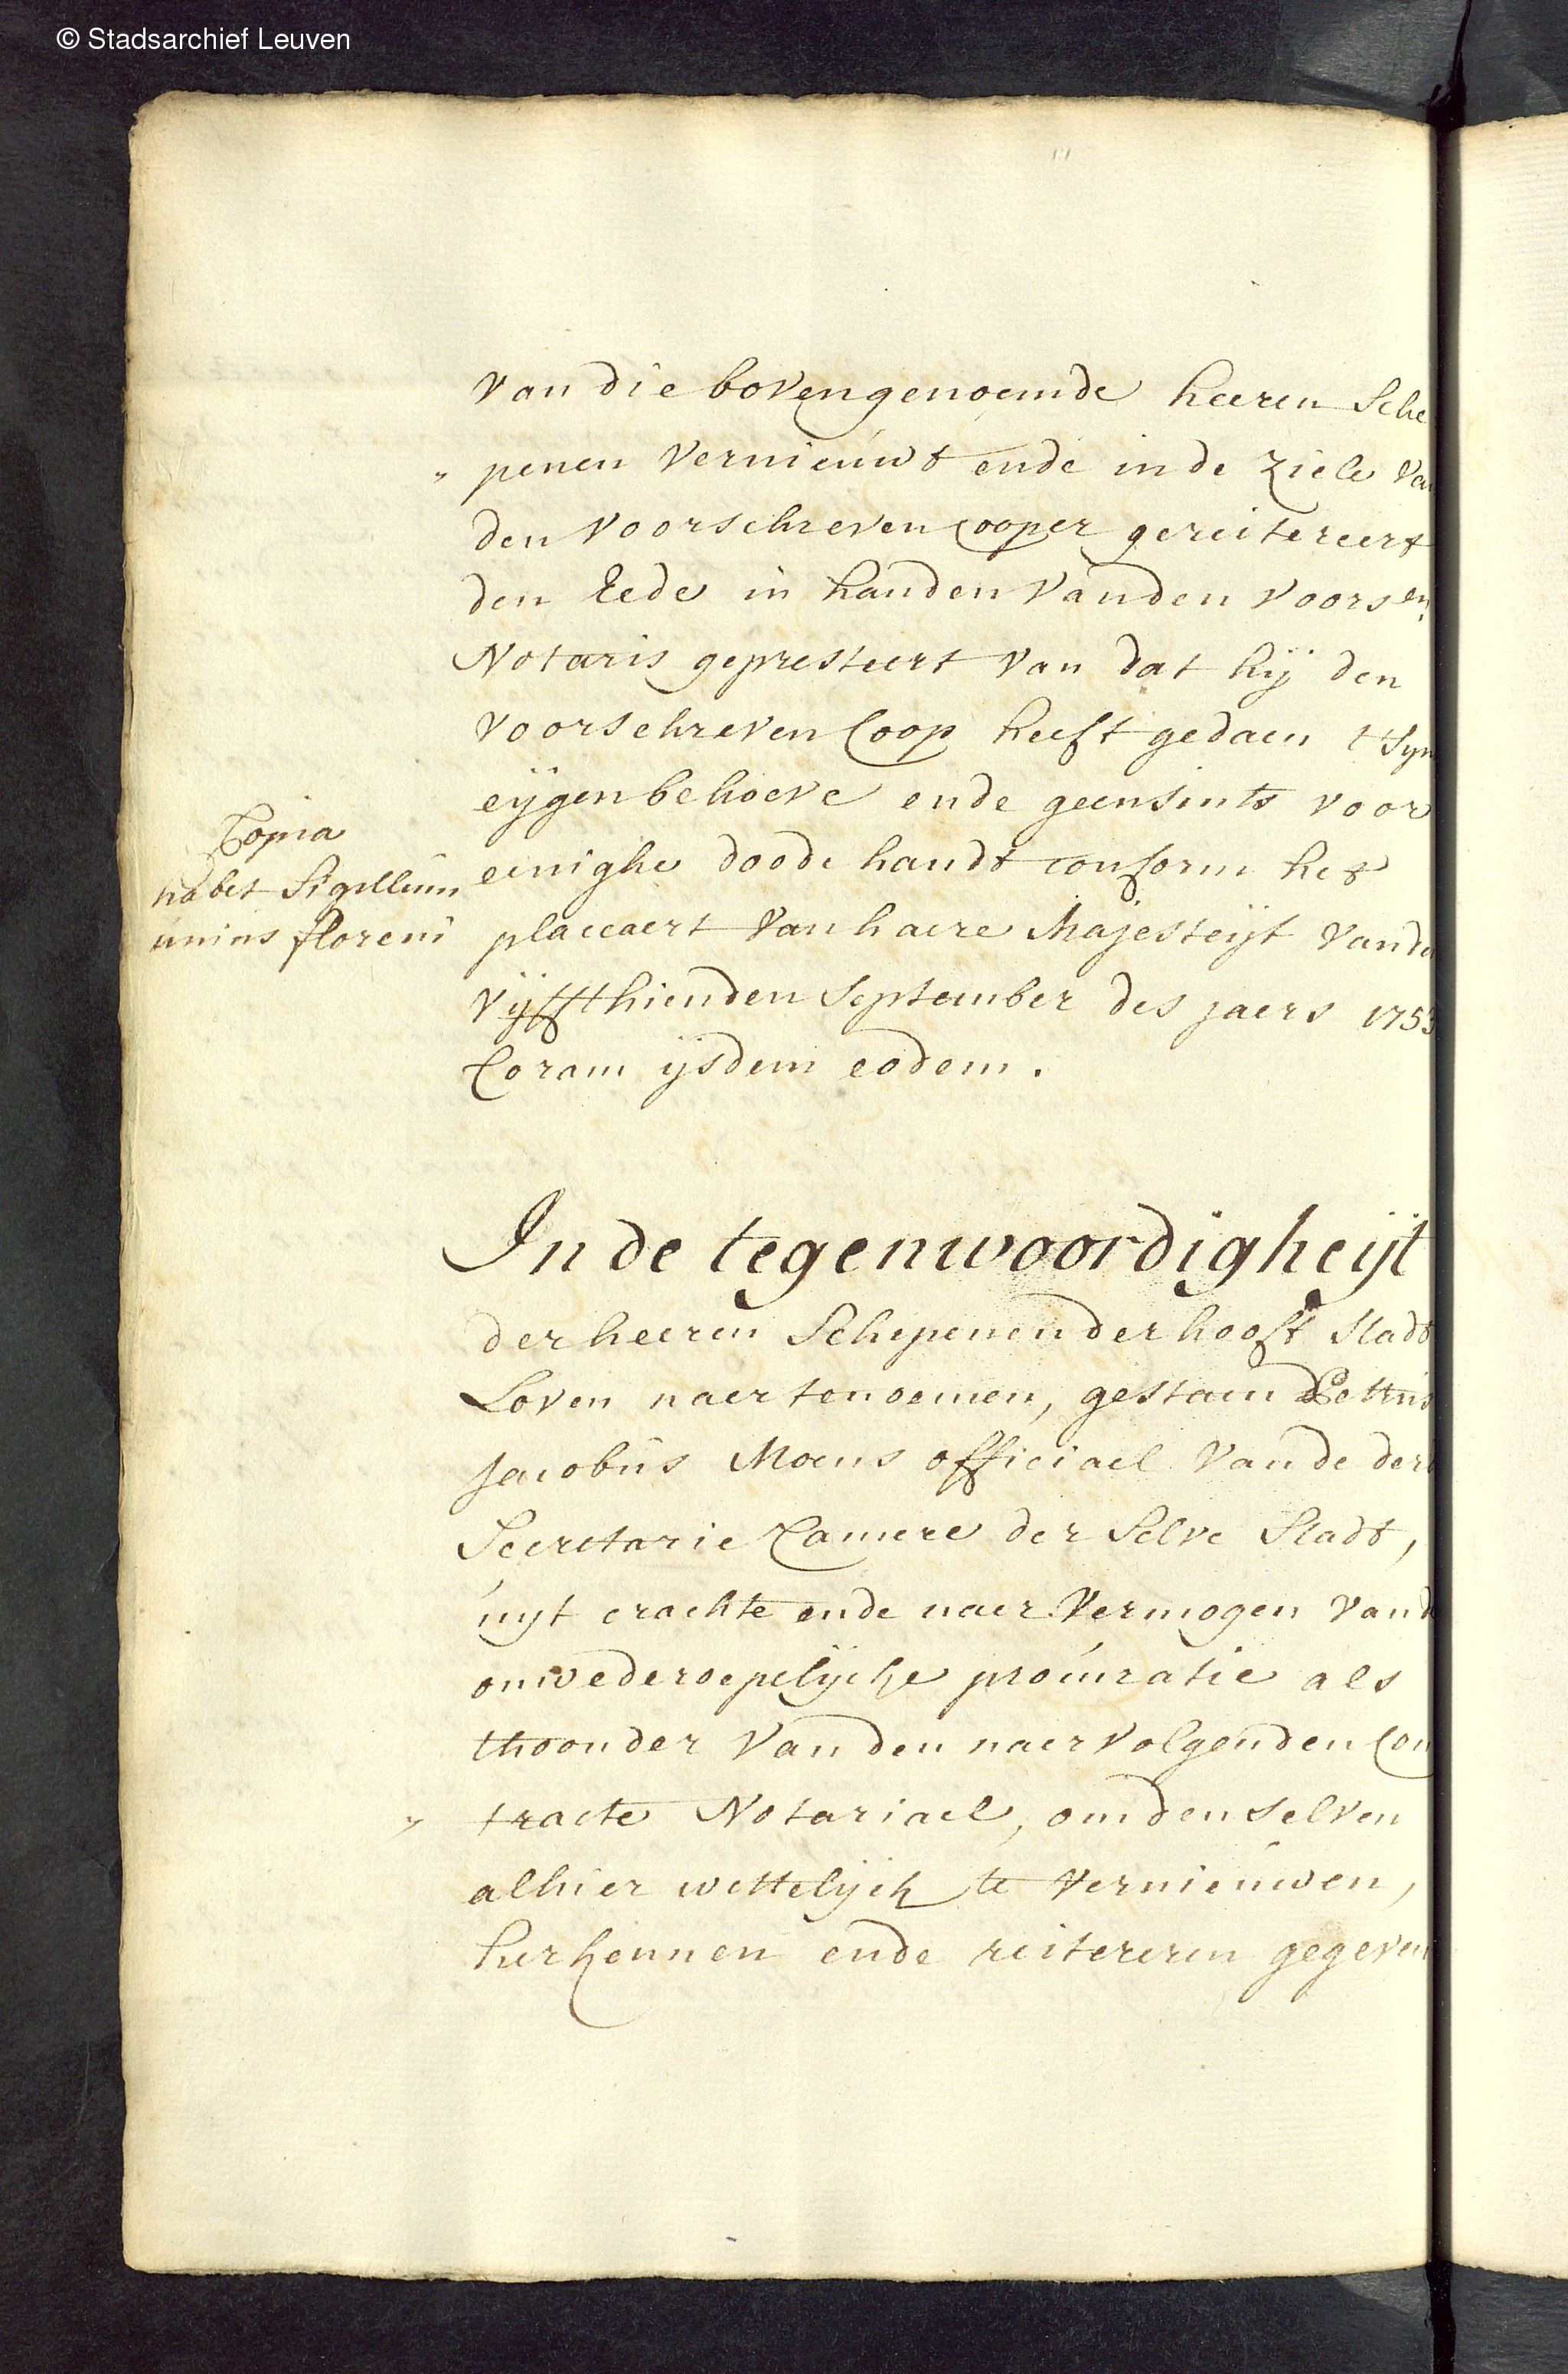 © Stadsarchief Leuven
van die bovengenoemde heeren Sche
„ penen vernieuwt ende inde ziele van
den voorschreven cooper gereitereert
den Eede in handen vanden voorsen.
Notaris gepresteert van dat hij den
voorschreven Coop heeft gedaen t'syn
eijgen behoeve ende geensints voor
eenighe doode handt conform het
placcaert van haere Majesteijt vande
vijffthienden September des jaers 1753
Coram ijsdem eodem.
Copia
habet Sigillum
unius floreni
In de tegenwoordigheijt
der heeren Schepenen der hooft stadt
Loven naertenoemen, gestaen Pettrus
Jacobus Moens officiael vande der
Secretarie Camere der Selve Stadt,
uyt crachte ende naer vermogen vande
onwederoepelijcke procuratie als
thoonder van den naervolgenden Con
„ tracte Notariael, om den selven
alhier wettelijck te vernieuwen,
herkennen ende reitereren gegeven